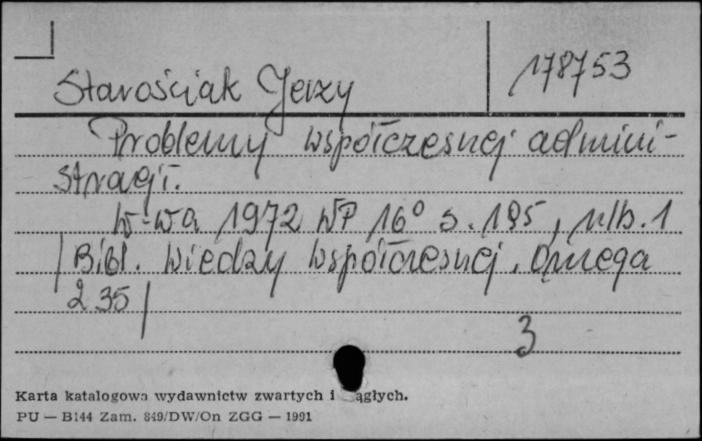 178753
Starościak Jerzy
Problemy współczesnej admini-
stracji.
W-wa 1972 WP 16° s. 195, nlb. 1
/Bibl. Wiedzy Współczesnej. Omega
235/
3
Karta katalogowa wydawnictw zwartych i ągłych.
PU — B144 Zam. 849/DW/On ZGG — 1991